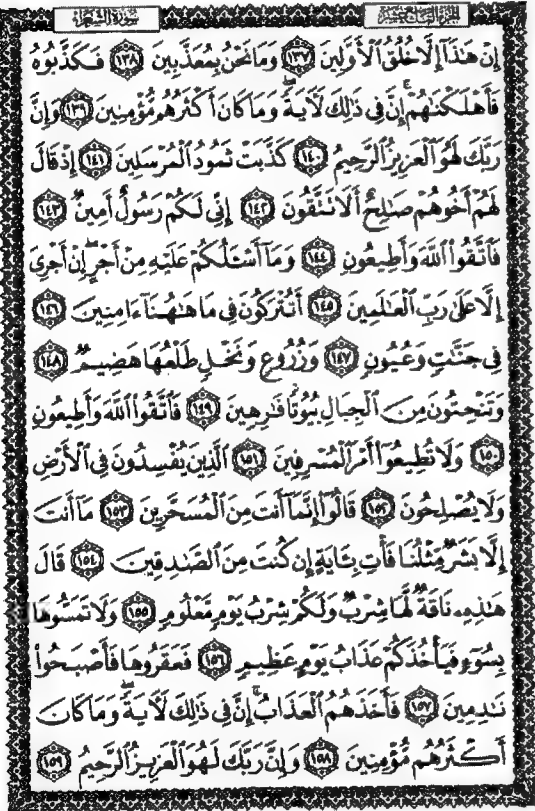 سورة الشعراء الجزء التاسع عشر
إِنْ هَٰذَآ إِلَّا خُلُقُ ٱلْأَوَّلِينَ ١٣٧ وَمَا نَحْنُ بِمُعَذَّبِينَ ١٣٨ فَكَذَّبُوهُ
فَأَهْلَكْنَٰهُمْ ۗ إِنَّ فِى ذَٰلِكَ لَءَايَةً ۖ وَمَا كَانَ أَكْثَرُهُم مُّؤْمِنِينَ ١٣٩ وَإِنَّ
رَبَّكَ لَهُوَ ٱلْعَزِيزُ ٱلرَّحِيمُ ١٤٠ كَذَّبَتْ ثَمُودُ ٱلْمُرْسَلِينَ ١٤١ إِذْ قَالَ
لَهُمْ أَخُوهُمْ صَٰلِحٌ أَلَا تَتَّقُونَ ١٤٢ إِنِّى لَكُمْ رَسُولٌ أَمِينٌ ١٤٣
فَٱتَّقُوا۟ ٱللَّهَ وَأَطِيعُونِ ١٤٤ وَمَآ أَسْـَٔلُكُمْ عَلَيْهِ مِنْ أَجْرٍ ۖ إِنْ أَجْرِىَ
إِلَّا عَلَىٰ رَبِّ ٱلْعَٰلَمِينَ ١٤٥ أَتُتْرَكُونَ فِى مَا هَٰهُنَآ ءَامِنِينَ ١٤٦
فِى جَنَّٰتٍ وَعُيُونٍ ١٤٧ وَزُرُوعٍ وَنَخْلٍ طَلْعُهَا هَضِيمٌ ١٤٨
وَتَنْحِتُونَ مِنَ ٱلْجِبَالِ بُيُوتًا فَٰرِهِينَ ١٤٩ فَٱتَّقُوا۟ ٱللَّهَ وَأَطِيعُونِ
١٥٠ وَلَا تُطِيعُوٓا۟ أَمْرَ ٱلْمُسْرِفِينَ ١٥١ ٱلَّذِينَ يُفْسِدُونَ فِى ٱلْأَرْضِ
وَلَا يُصْلِحُونَ ١٥٢ قَالُوٓا۟ إِنَّمَآ أَنتَ مِنَ ٱلْمُسَحَّرِينَ ١٥٣ مَآ أَنتَ
إِلَّا بَشَرٌ مِّثْلُنَا فَأْتِ بِـَٔايَةٍ إِن كُنتَ مِنَ ٱلصَّٰدِقِينَ ١٥٤ قَالَ
هَٰذِهِۦ نَاقَةٌ لَّهَا شِرْبٌ وَلَكُمْ شِرْبُ يَوْمٍ مَّعْلُومٍ ١٥٥ وَلَا تَمَسُّوهَا
بِسُوٓءٍ فَيَأْخُذَكُمْ عَذَابُ يَوْمٍ عَظِيمٍ ١٥٦ فَعَقَرُوهَا فَأَصْبَحُوا۟
نَٰدِمِينَ ١٥٧ فَأَخَذَهُمُ ٱلْعَذَابُ ۗ إِنَّ فِى ذَٰلِكَ لَءَايَةً ۖ وَمَا كَانَ
أَكْثَرُهُم مُّؤْمِنِينَ ١٥٨ وَإِنَّ رَبَّكَ لَهُوَ ٱلْعَزِيزُ ٱلرَّحِيمُ ١٥٩